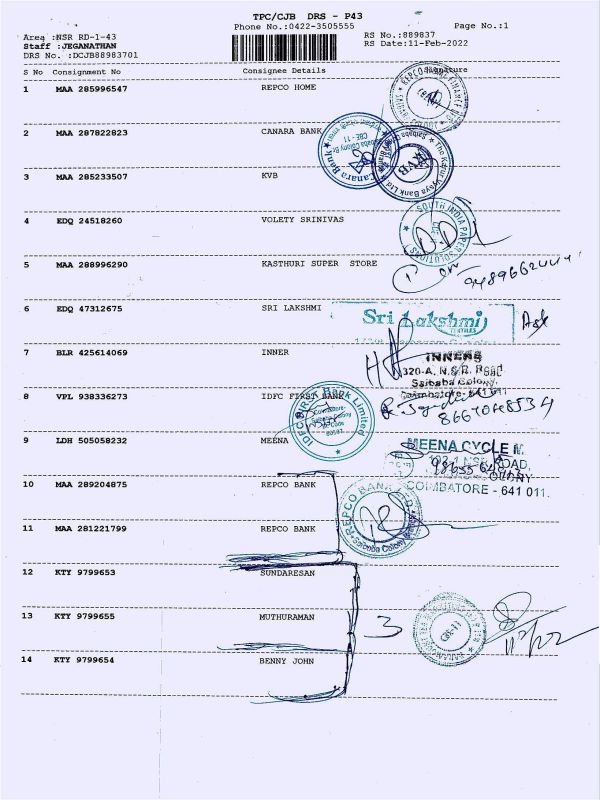 TPC/CJB DRS - P43
Phone No.:0422-3505555
Page No.:1
Area :NSR RD-1-43
RS No.:889837
Staff :JEGANATHAN
RS Date:11-Feb-2022
DRS No. :DCJB88983701
S No Consignment No Consignee Details Signature
1 MAA 285996547 REPCO HOME
2 MAA 287822823 CANARA BANK
Canara Bank
CBE - 11
3 MAA 285233507 KVB
The Karur Vysya Bank Ltd
KVB
4 EDQ 24518260 VOLETY SRINIVAS
SOUTH INDIA PAPER SOLUTIONS
5 MAA 288996290 KASTHURI SUPER STORE
6 EDQ 47312675 SRI LAKSHMI
Sri Lakshmi
7 BLR 425614069 INNER
INNERS
320-A, N.S.R. Road
Saibaba Colony,
Coimbatore- 641 011
8 VPL 938336273 IDFC FIRST BANK
IDFC FIRST Bank Limited
9 LDH 505058232 MEENA
MEENA CYCLE M
ROAD,
COIMBATORE - 641 011.
10 MAA 289204875 REPCO BANK
REPCO BANK LTD
Saibaba Colony Branch
11 MAA 281221799 REPCO BANK
12 KTY 9799653 SUNDARESAN
13 KTY 9799655 MUTHURAMAN
3
CBE-11
14 KTY 9799654 BENNY JOHN